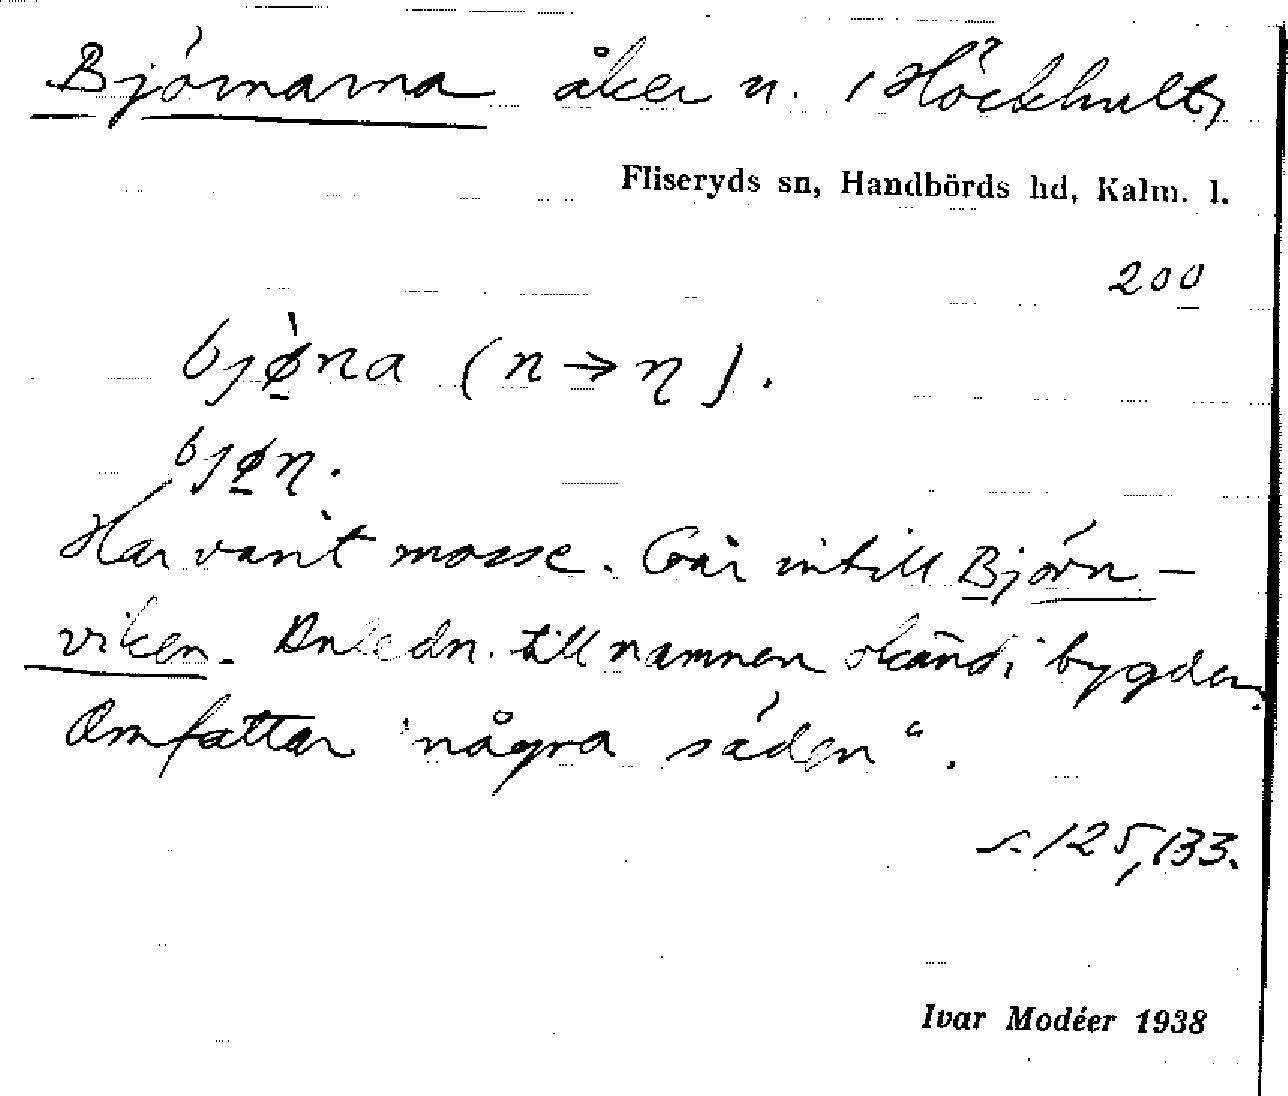 Björnarna åker n. Höckhult,
Fliseryds sn, Handbörds hd, Kalm. l.
200
bjø̠̀na (n → ɳ).
bjø̠ɳ.
Har varit mosse. Går intill Björn-
viken. Anledn. till namnen okänd i bygden.
Omfattar "några säden".
s. 125, 133.
Ivar Modéer 1938